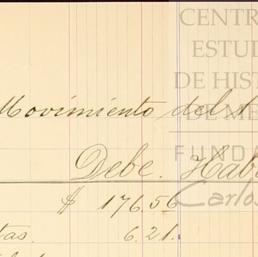 CENTR
ESTUD
DE HIST
DE MÉ
FUNDA
Carlos
Movimiento del
Debe. Hab
$ 176.56
tas. 6.21.